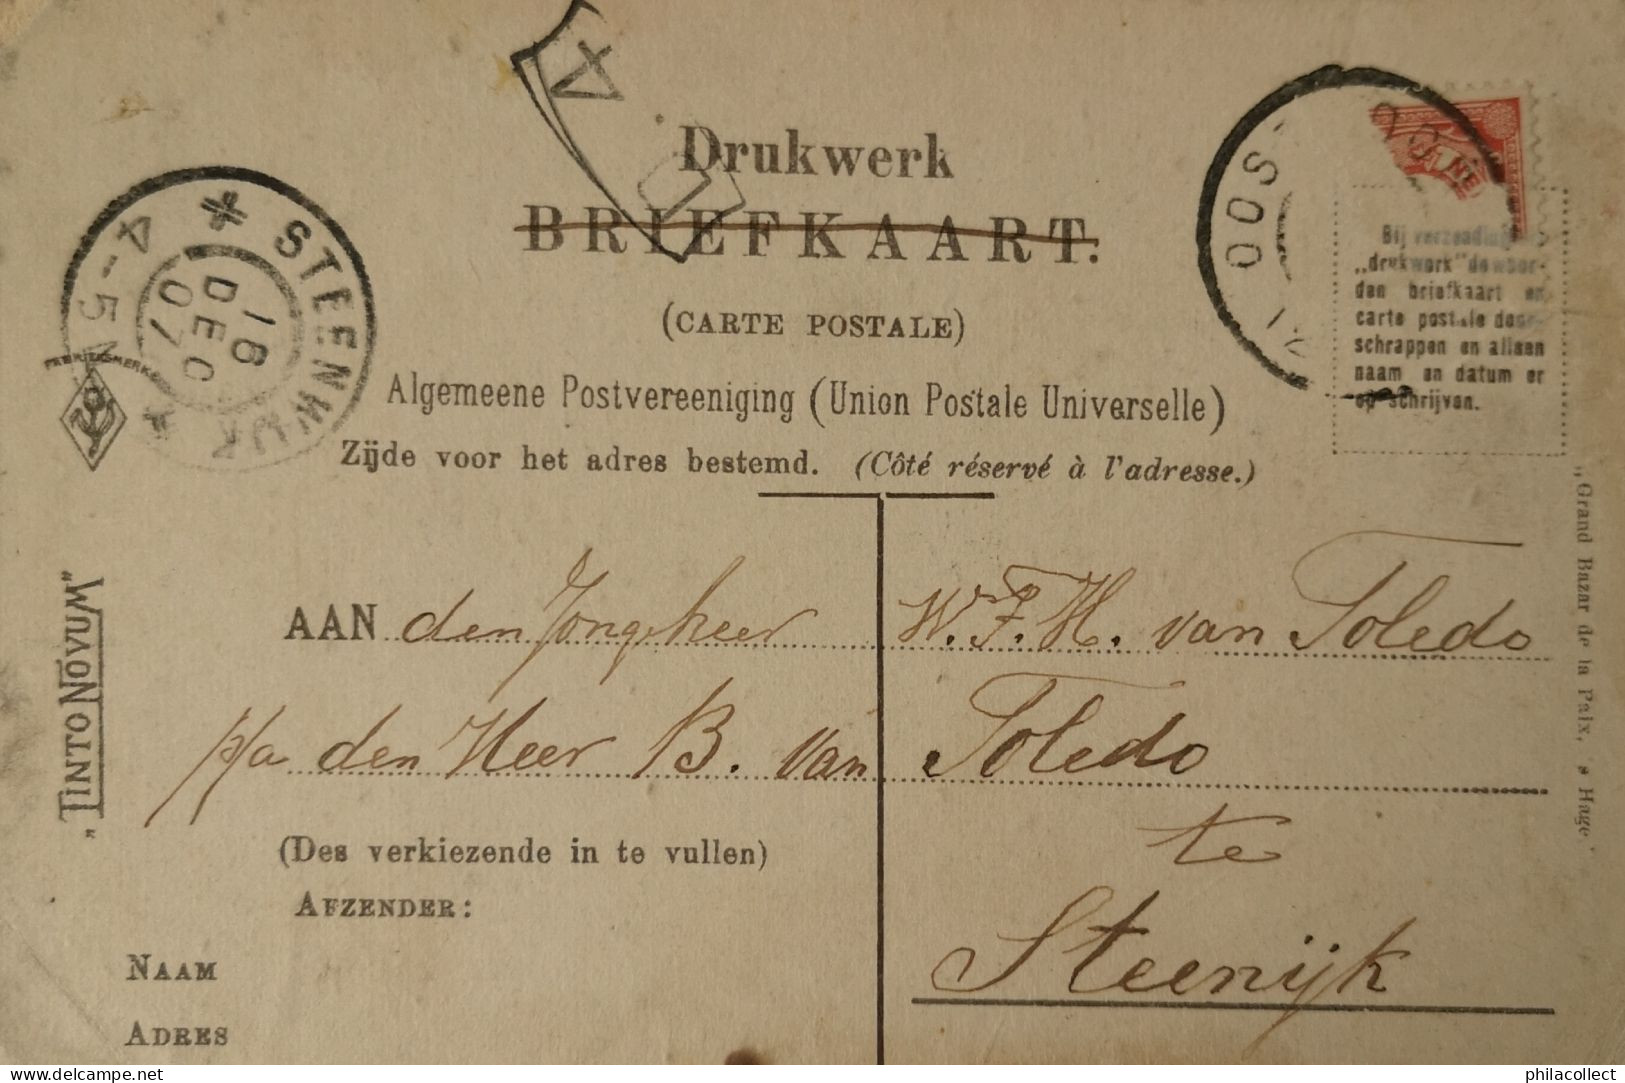 Drukwerk
BRIEFKAART.
(CARTE POSTALE)
Algemeene Postvereeniging (Union Postale Universelle)
Zijde voor het adres bestemd. (Côté réservé à l'adresse.)
STEENWIJK
4-5N
16
DEC
07
FABRIEKSMERK
„TINTO NOVUM"
OOS
Bij verzending
„drukwerk" de woor-
den briefkaart en
carte postale door-
schrappen en alleen
naam en datum er
op schrijven.
„Grand Bazar de la Paix, s Hage
AAN den Jongeheer W. F. H. van Toledo
p/a den Heer B. van Toledo
te
Steenijk
(Des verkiezende in te vullen)
AFZENDER:
NAAM
ADRES
delcampe.net
philacollect